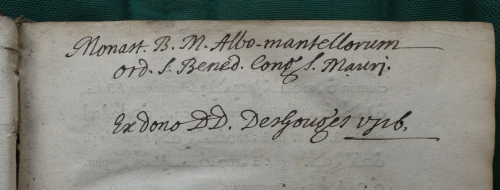 Monast. B. M. Albo-mantellorum
Ord. S. Bened. Cong. S. Mauri.
Ex dono DD. DesGouges 1716.